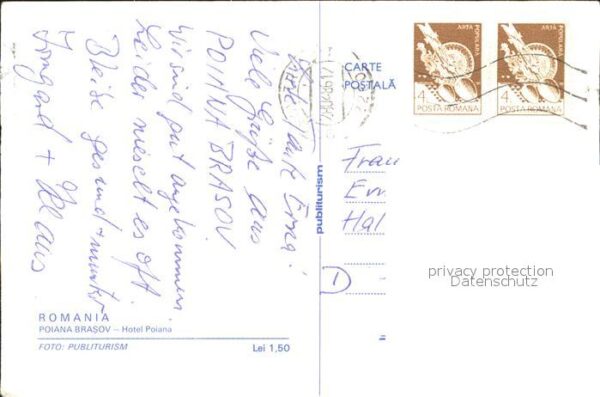 Liebe Tante Erna!
Viele Grüße aus
POIANA BRASOV.
Wir sind gut angekommen.
Leider nieselt es oft.
Bleibe gesund + munter
Irmgard + Klaus
ROMANIA
POIANA BRAȘOV – Hotel Poiana
FOTO: PUBLITURISM Lei 1,50
publiturism
CARTE
POȘTALĂ
ARTA POPULARA
4
POSTA ROMANA
ARTA POPULARA
4
POSTA ROMANA
Frau
Erv
Hal
D
privacy protection
Datenschutz